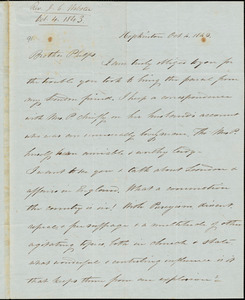 Rev. J. C. Webster
Oct. 4. 1843.
Hopkinton Oct. 4. 1843
Brother Phelps,
I am truly obliged to you for
the trouble you took to bring the parcel from
my London friend. I keep a correspondence
with Mrs P. chiefly on her husband's account
who was an exceedingly busy man. The Mrs P
is an amiable & worthy lady.
I want to see you & talk about London &
affairs in England. What a commotion
the country is in! With Puseyism, dissent,
repeal, & free suffrage & a multitude of other
agitating topics, both in church & state
what wonderful & controlling influence is it
that keeps them from an explosion?